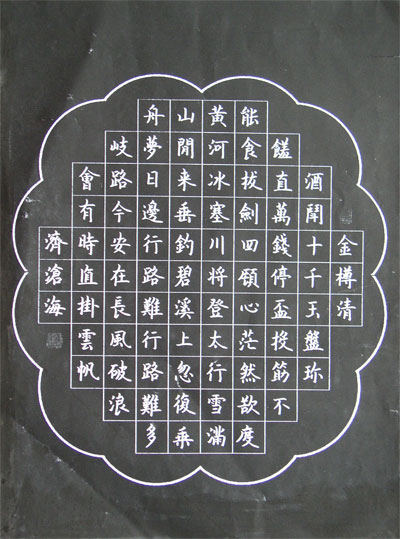 金樽清
酒閗十千玉盤珎
饈直萬錢停盃投筯不
能食拔劍四頋心茫然欲度
黄河冰塞川將登太行雪滿
山閒来垂釣碧溪上忽復乘
舟夢日邊行路難行路難多
岐路今安在長風破浪
會有時直掛雲帆
濟滄海